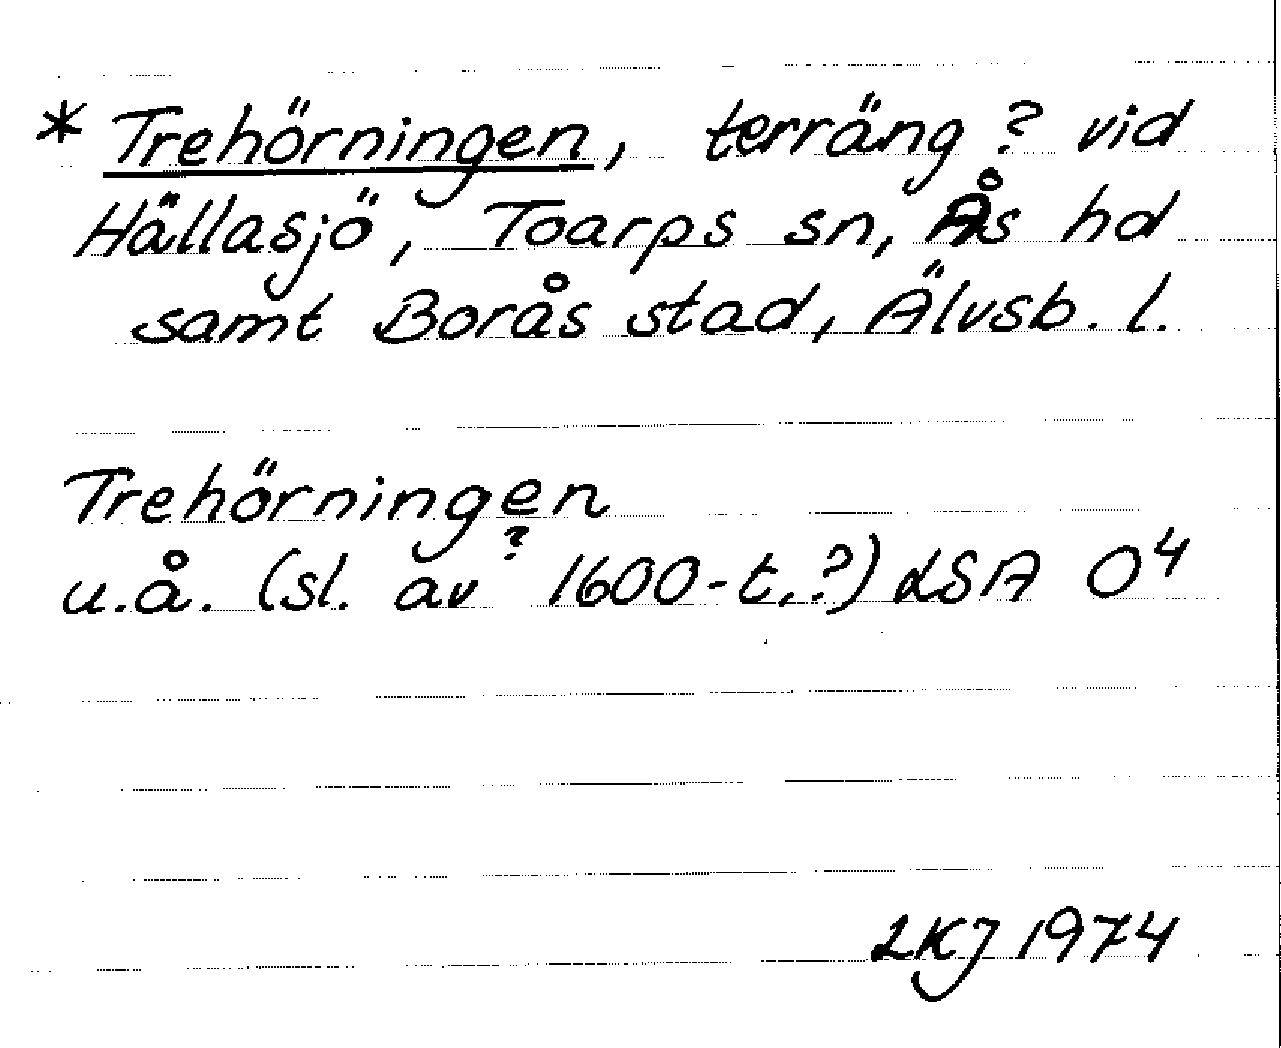 * Trehörningen, terräng? vid
Hällasjö, Toarps sn, Ås hd
samt Borås stad, Älvsb. l.
Trehörningen
u.å. (sl. av ? 1600-t.?) LSA O4
LKJ 1974